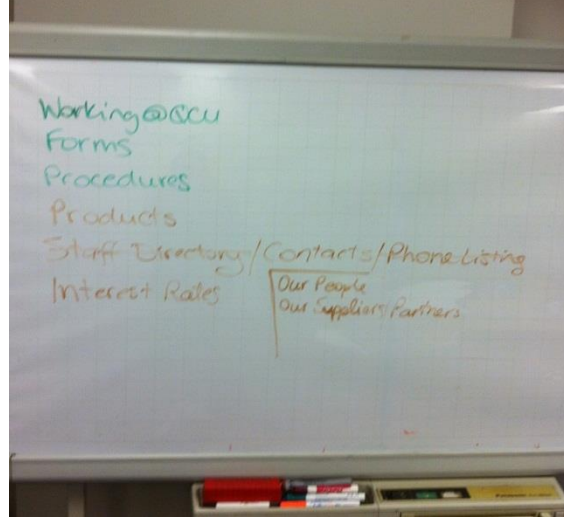 Working@QCU
Forms
Procedures
Products
Staff Directory/Contacts/Phone Listing
Interest Rates
Our People
Our Suppliers/Partners